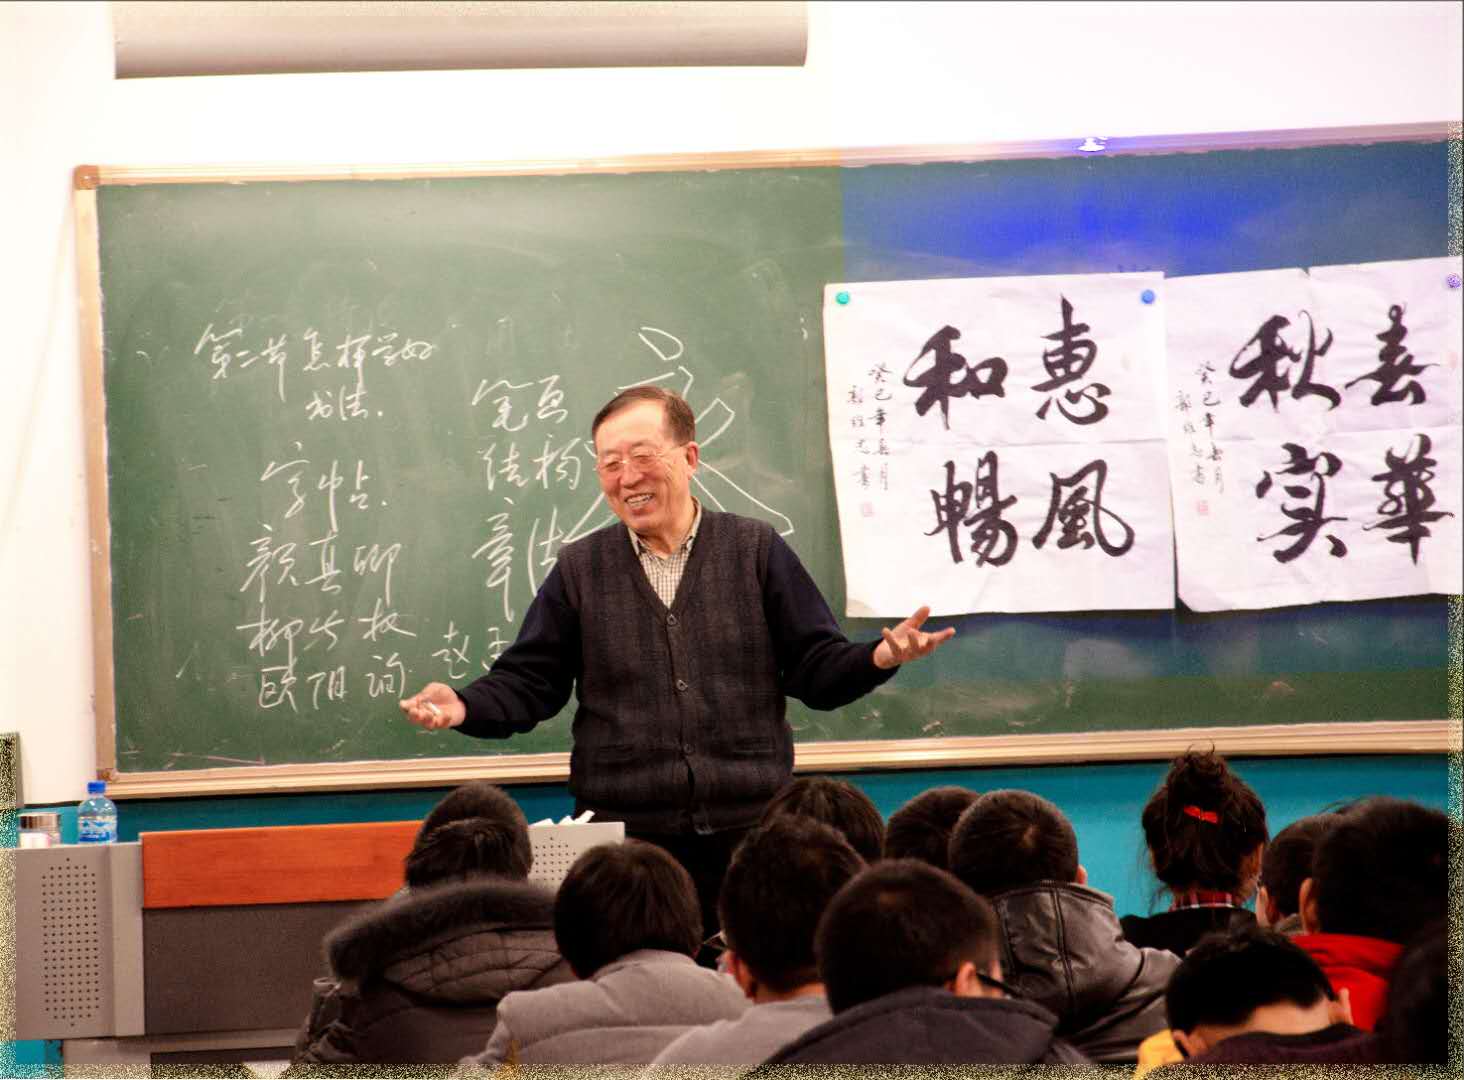 第二节 怎样学好
书法.
字帖.
颜真卿
柳公权
欧阳询 赵
笔画
结构
章法
惠风和暢
癸巳年春月
郭維志書
春華秋实
癸巳年春月
郭維志書